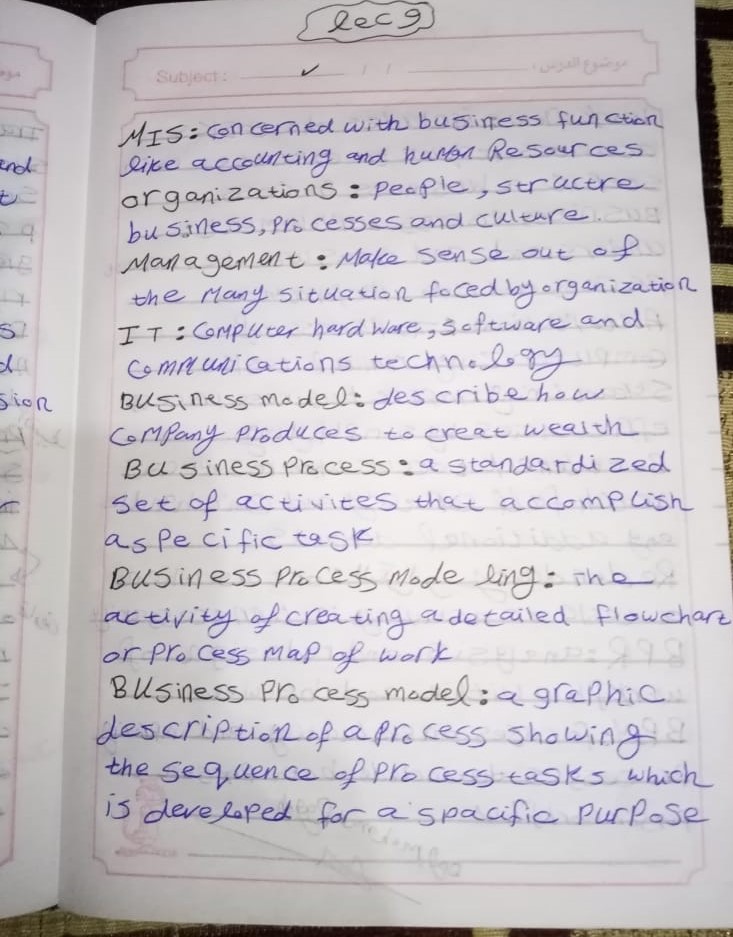 lec 9
Subject:
موضوع الدرس:
MIS: concerned with business function
like accounting and human Resources
organizations: people, structre
business, processes and culture.
Management: Make sense out of
the many situation faced by organization
IT: Computer hardware, software and
communications technology
Business model: describe how
company produces to creat wealth
Business Process: a standardized
set of activites that accomplish
a specific task
Business Process Modeling: the
activity of creating a detailed flowchart
or process map of work
Business process model: a graphic
description of a process showing
the sequence of process tasks which
is developed for a spacific purpose
and
t
s
d
sion